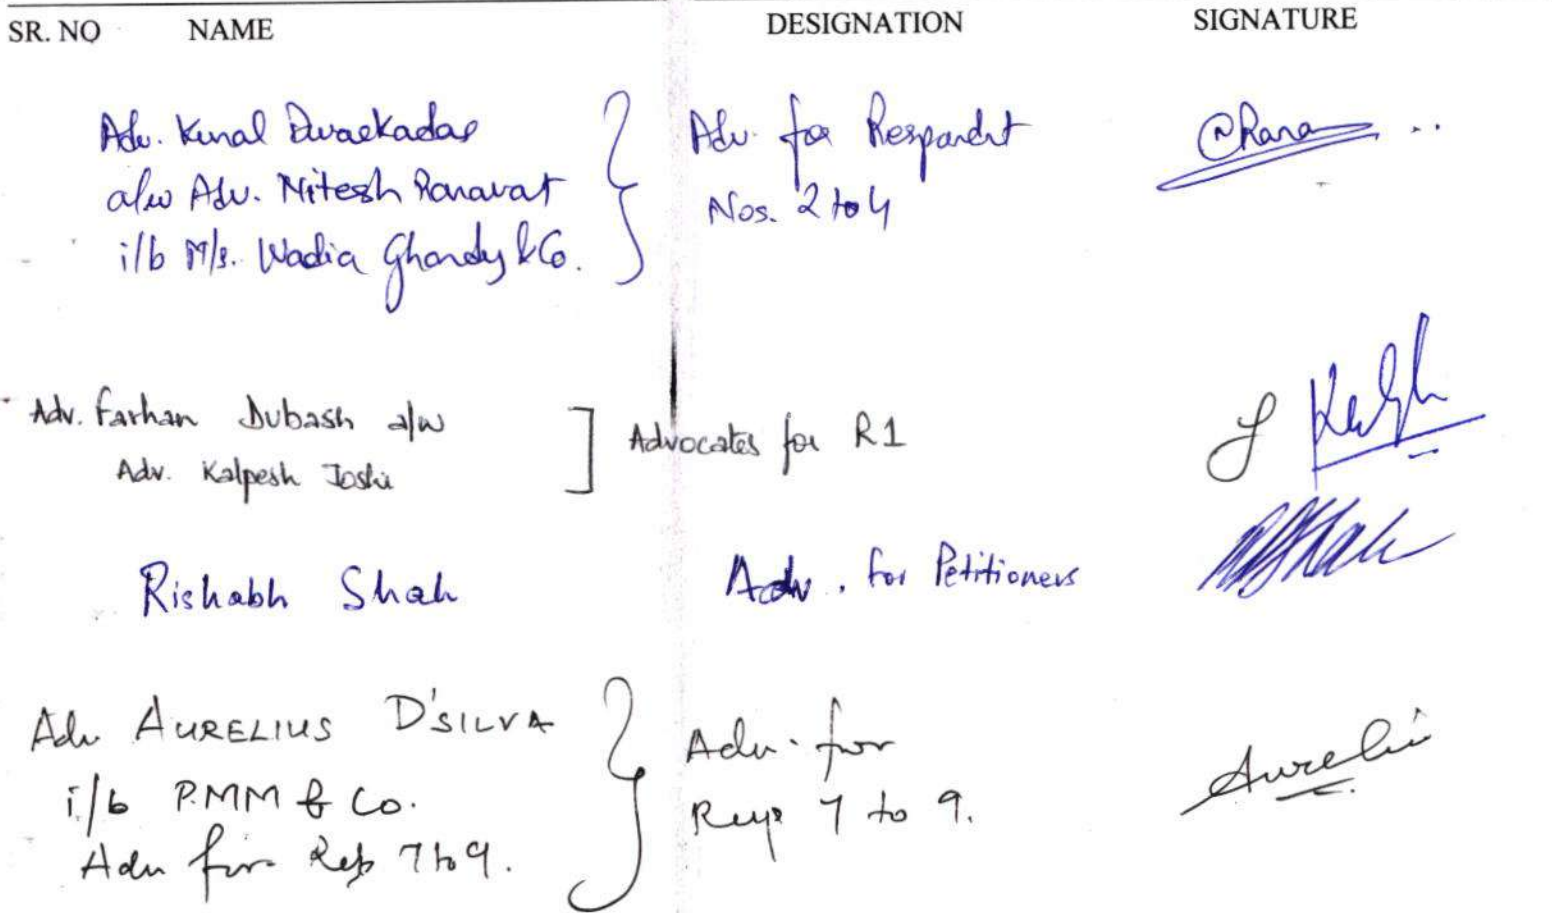 SR. NO NAME DESIGNATION SIGNATURE
Adv. Kunal Dwarkadas
a/w Adv. Nitesh Ranavat
i/b M/s. Wadia Ghandy & Co.
Adv. for Respondent
Nos. 2 to 4
Adv. Farhan Dubash a/w
Adv. Kalpesh Joshi
Advocates for R1
Rishabh Shah
Adv. for Petitioners
Adv AURELIUS D'SILVA
i/b P.MM & Co.
Adv for Resp 7 to 9.
Adv. for
Resp 7 to 9.
Aureli